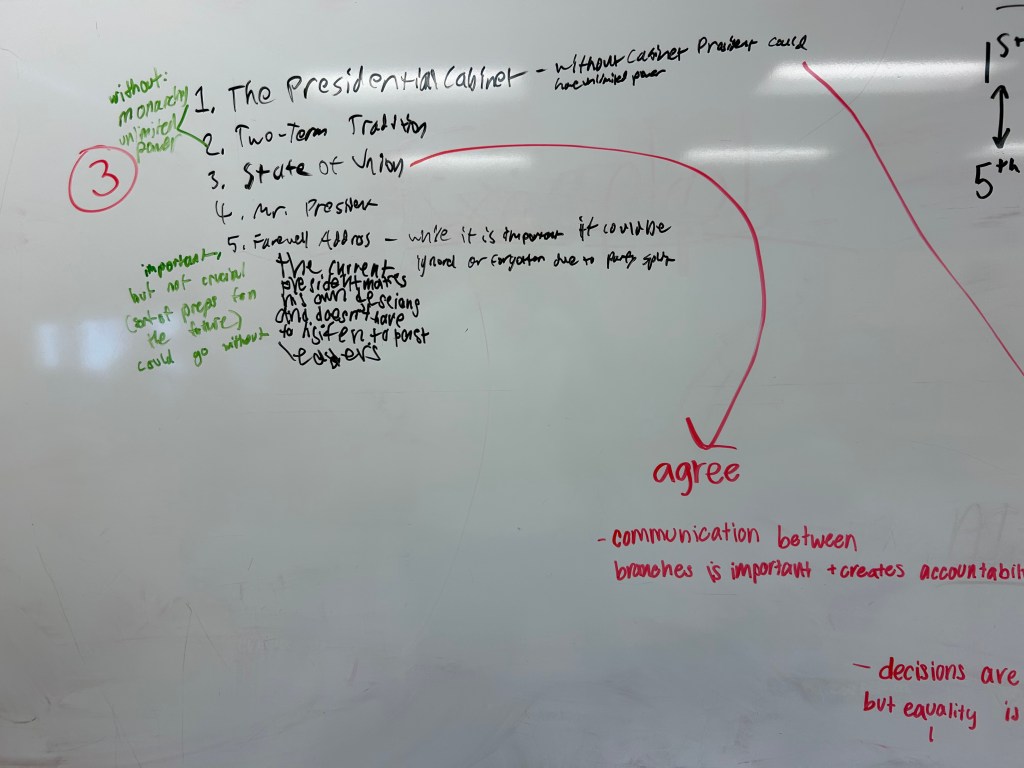 without:
monarchy
unlimited
power
1. The Presidential Cabinet - without Cabinet President could
have unlimited power
2. Two-Term Tradition
3. State of Union
4. Mr. President
3
5. Farewell Address - while it is important it could be
ignored or forgotten due to party split
the current
president makes
his own
and doesn't have
to listen to past
leaders
important,
but not crucial
(sort of preps for
the future)
could go without
agree
- communication between
branches is important + creates accountabili
- decisions are
but equality is
1s
5th